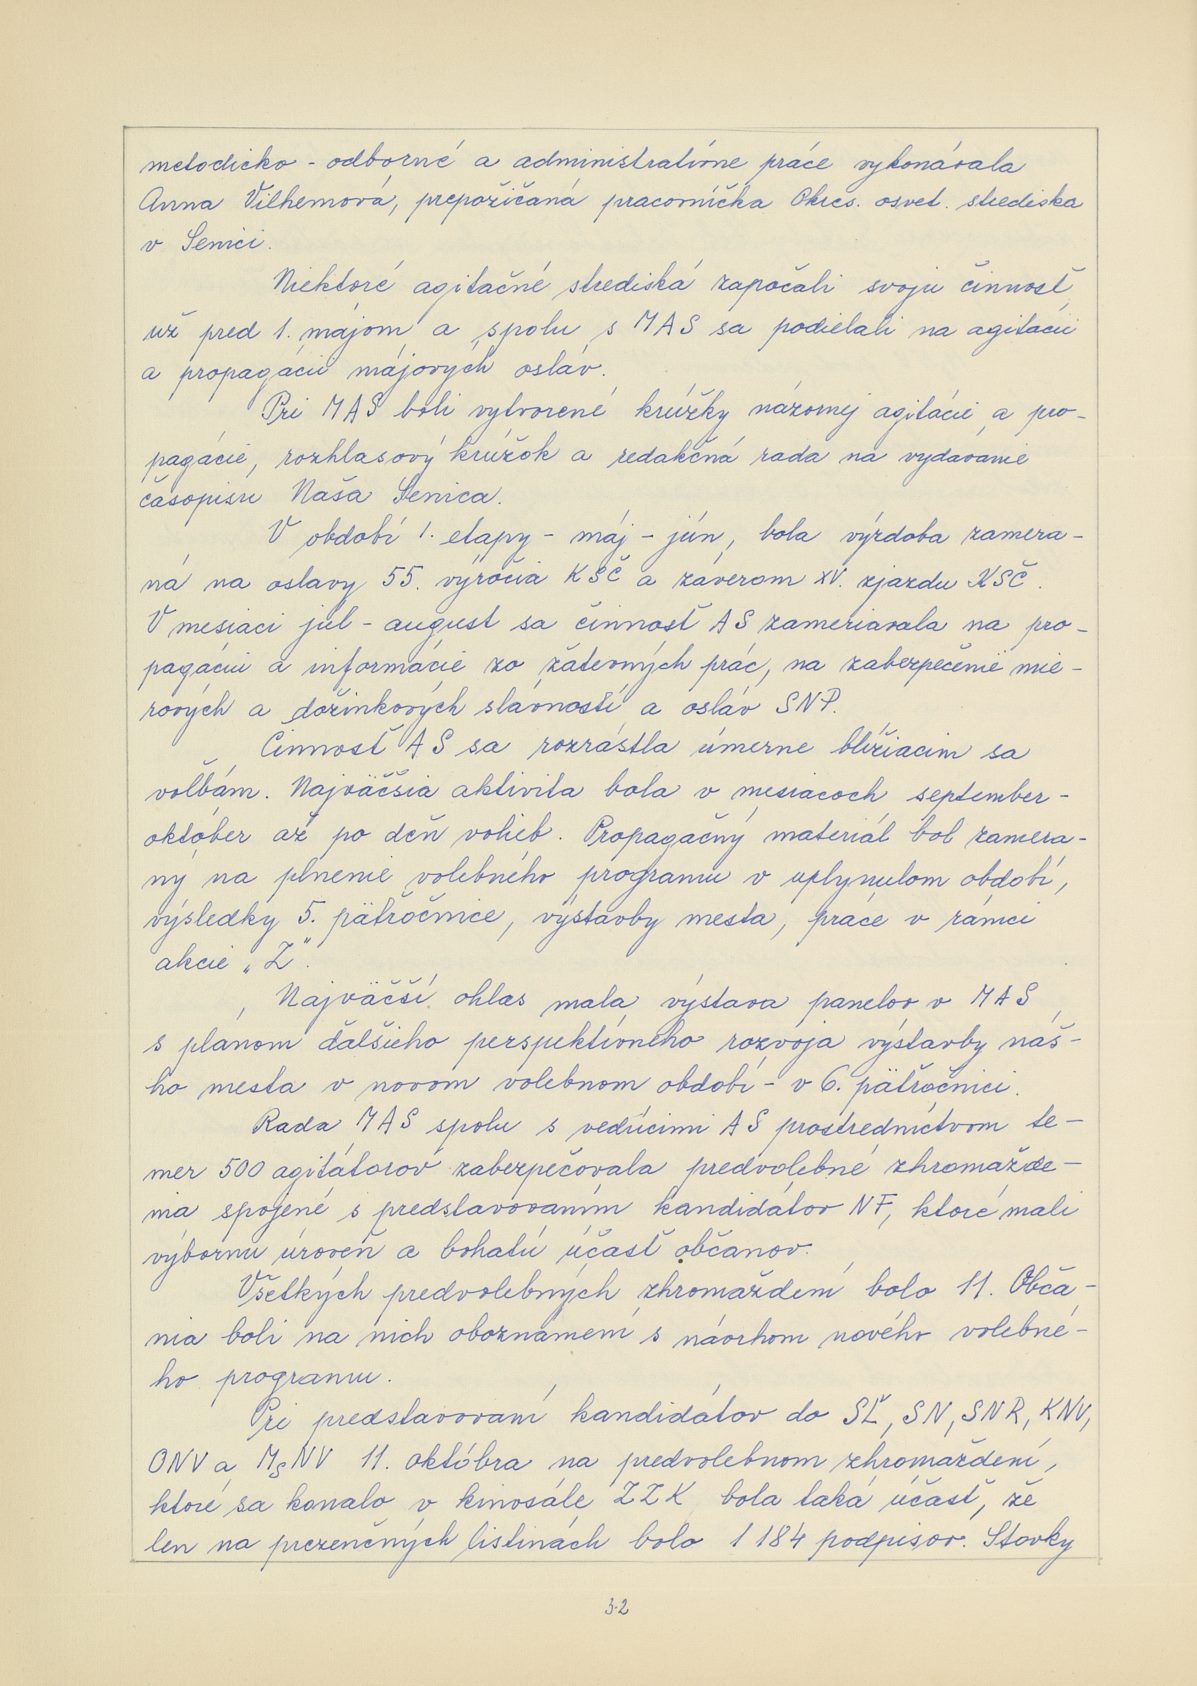 metodicko - odborné a administratívne práce vykonávala
Anna Vilhemová, prepožičaná pracovníčka Okres. osvet. strediska
v Senici.
Niektoré agitačné strediská započali svoju činnosť
už pred 1. májom a spolu s MAS sa podielali na agitácii
a propagácii májových osláv.
Pri MAS boli vytvorené krúžky názornej agitácie a pro-
pagácie, rozhlasový krúžok a redakčná rada na vydávanie
časopisu Naša Senica.
V období 1. etapy - máj - jún, bola výzdoba zamera-
ná na oslavy 55. výročia KSČ a záverom XV. zjazdu KSČ.
V mesiaci júl - august sa činnosť AS zameriavala na pro-
pagáciu a informácie zo žatevných prác, na zabezpečenie mie-
rových a dožinkových slávností a osláv SNP.
Činnosť AS sa rozrástla úmerne blížiacim sa
voľbám. Najväčšia aktivita bola v mesiacoch september-
október až po deň volieb. Propagačný materiál bol zamera-
ný na plnenie volebného programu v uplynulom období,
výsledky 5. päťročnice, výstavby mesta, práce v rámci
akcie „Z".
Najväčší ohlas mala výstava panelov v MAS
s plánom ďalšieho perspektívneho rozvoja výstavby náš-
ho mesta v novom volebnom období - v 6. päťročnici.
Rada MAS spolu s vedúcimi AS prostredníctvom te-
mer 500 agitátorov zabezpečovala predvolebné zhromažde-
nia spojené s predstavovaním kandidátov NF, ktoré mali
výbornu úroveň a bohatú účasť občanov.
Všetkých predvolebných zhromaždení bolo 11. Obča-
nia boli na nich oboznámení s návrhom nového volebné-
ho programu.
Pri predstavovaní kandidátov do SĽ, SN, SNR, KNV,
ONV a MsNV 11. októbra na predvolebnom zhromaždení,
ktoré sa konalo v kinosále ZZK bola taká účasť, že
len na prezenčných listinách bolo 1 184 podpisov. Stovky
32